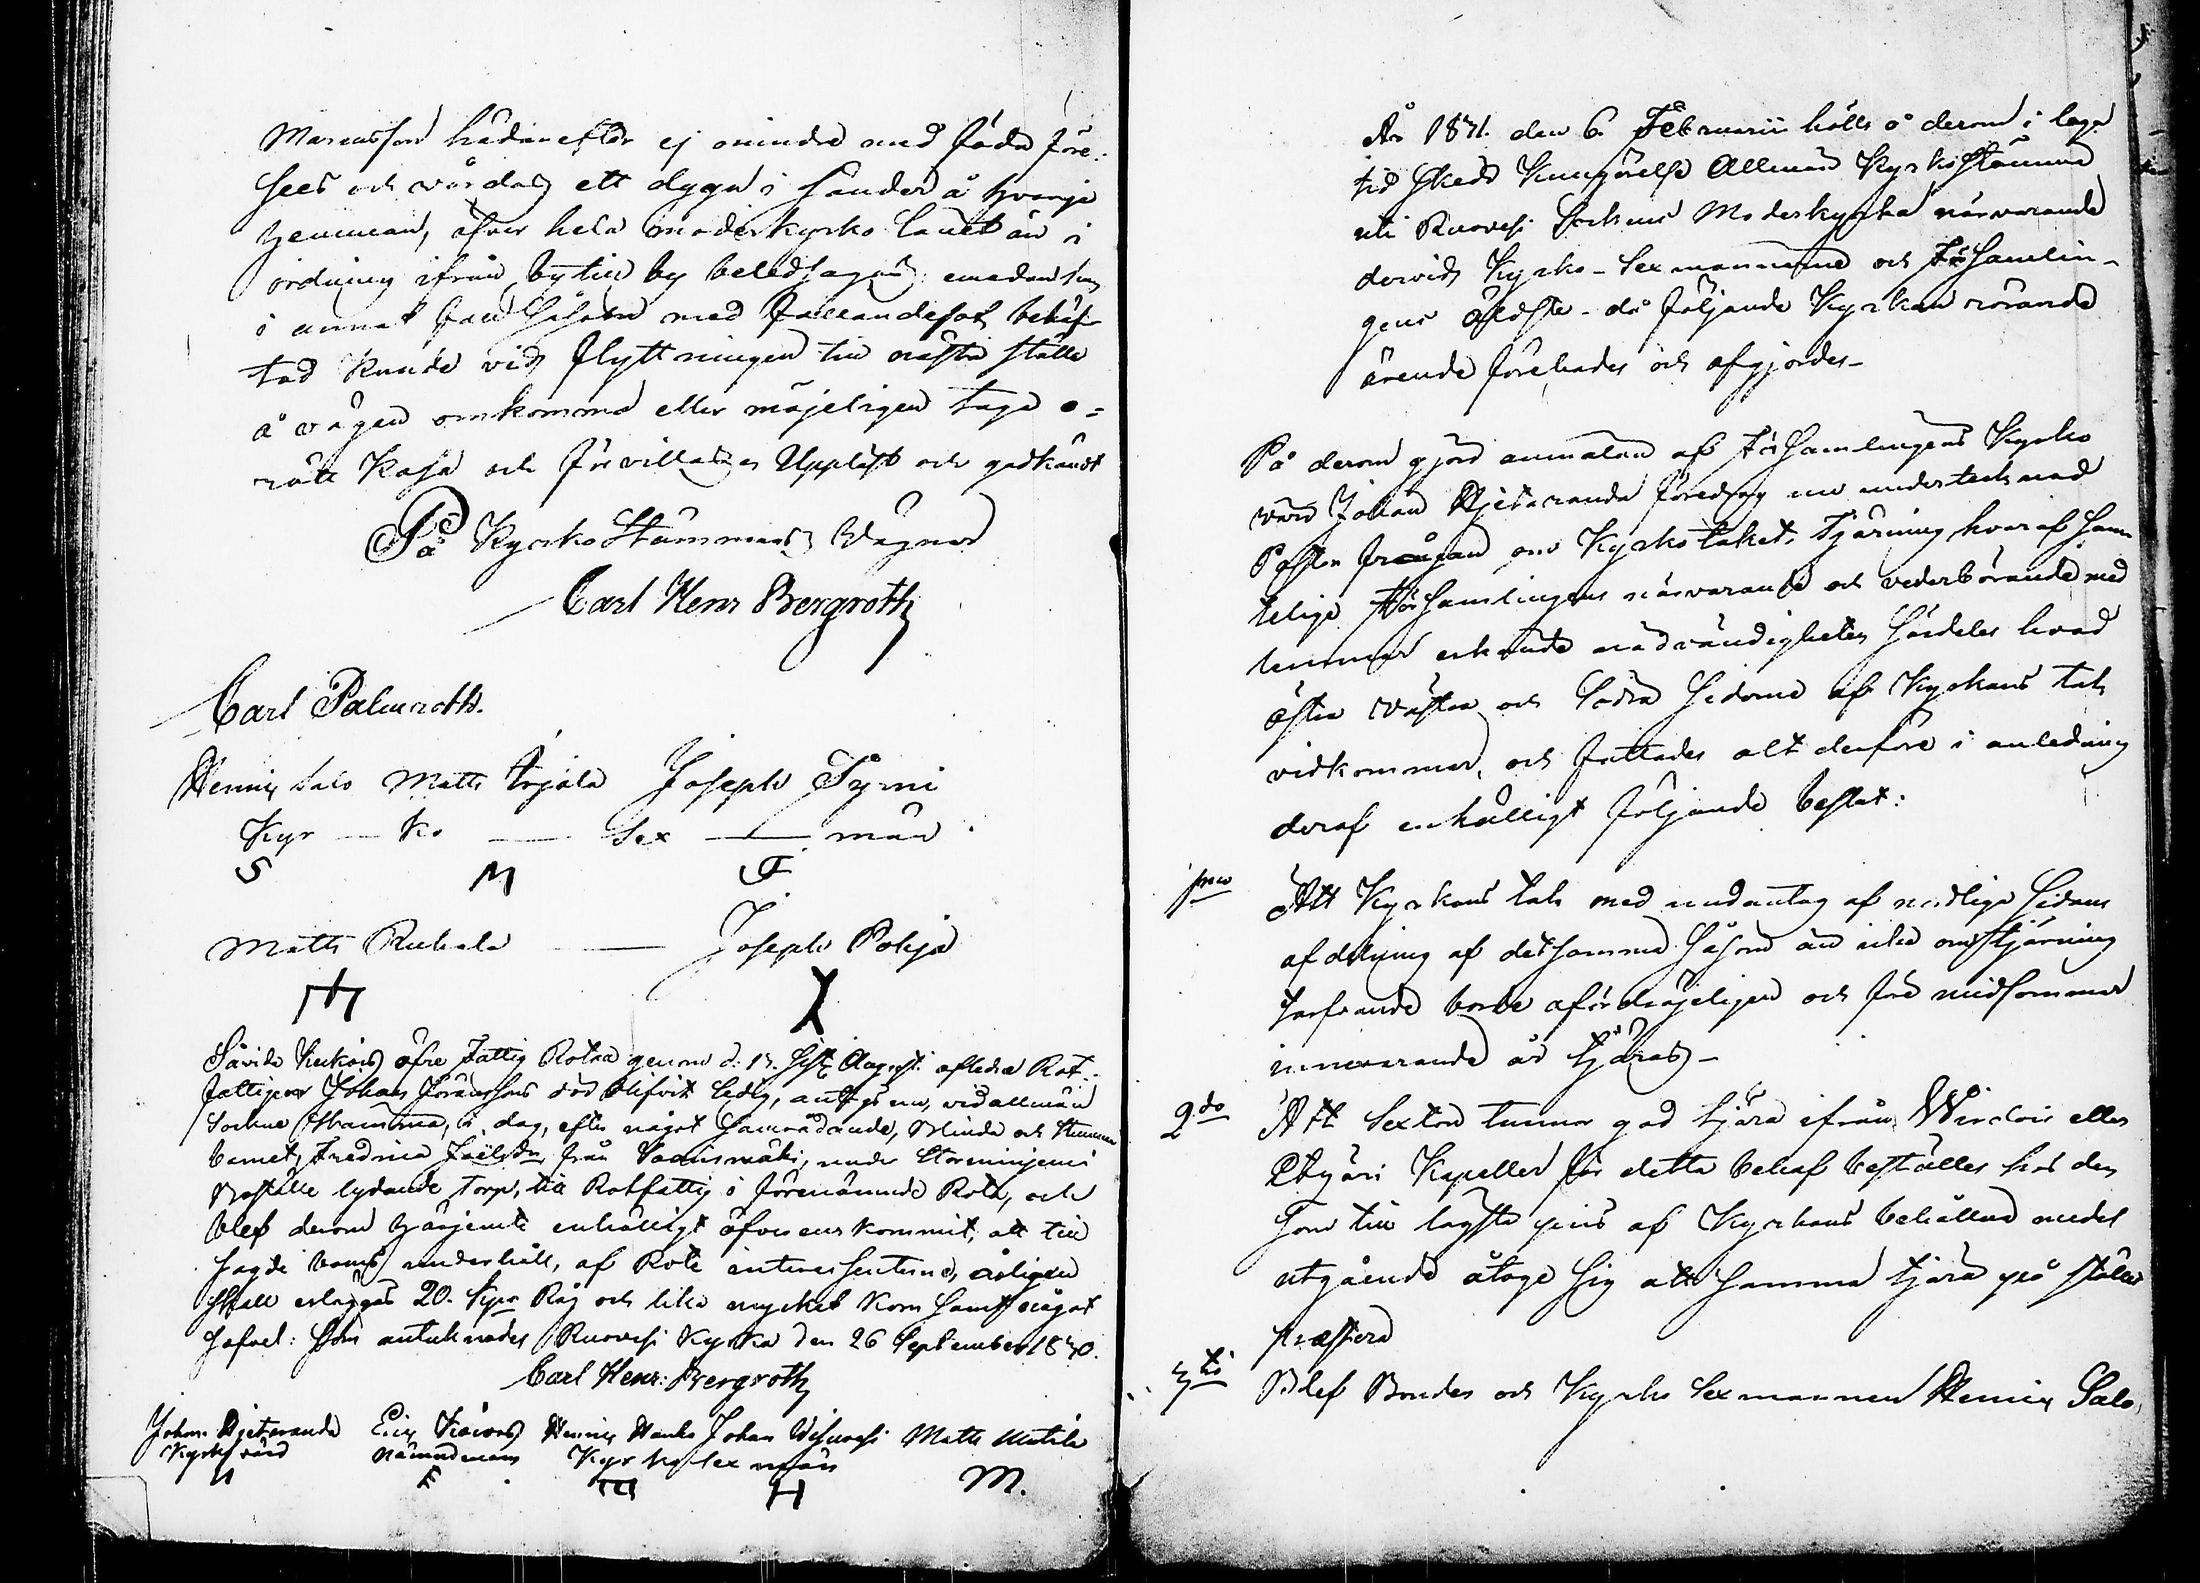 Marcusson hädanefter ej mindre med föda före-
sees och vårdas ett dygn i sander å hvarje
hemman, öfver hela moderkyrko lanet än i
ordning ifrån by till by beledsagas; emedan hon
i annat fall såsom med fallandesot behäf-
tad kunde vid flyttningen till nästa ställe
å vägen omkomma eller möjeligen taga o-
rätt kosa och förvillas; Uppläst och godkändt
På KyrkoStämmans Wägnar
Carl Henr Bergroth
Carl Palmroth.
Henric Salo Matts Erjala Joseph Pyrni
Kyr - ko - Sex - män
S M
Matts Ruhala - Joseph Pohja
Såvida Kuckois öfre Fattig Rotea genom d: 13. sistl. Augusti aflidne Rot-
fattigas Johan Göranssons död blifvit ledig, antogs nu, vid allmän
Sockne Stämma, i dag, efter något samrådande, blinda och stumma
barnet, Fredrica från under
Boställe lydande torp, till Rotfattig i förenämnde Rota, och
blef derom härjemte enhälligt öfverenskommit, att till
sagde barns underhåll, af Rote interessenterne, årligen
skall erläggas 20. kpr Råg och lika mycket Korn samt något
Som antecknades Ruovesi Kyrka den 26 September 1830.
Carl Henr: Bergroth
Johan Hjetaranda Eric Henric Hanho Johan Wisuvesi Matts Mutila
Kyrkovärd Nämndeman Kyrko Sex män
H E H M.
År 1831. den 6. Februarii hölls å derom i laga
tid skedd Kungörelse Allmän Kyrkostämma
uti Ruovesi Sockens Moderkyrka närvarande
dervid Kyrko-Sexmännerne och Församlin-
gens Äldste - då följande Kyrkan rörande
ärende förehades och afgjordes -
På derom gjord anmälan af Församlingens Kyrko
värd Johan Hjetaranda föredrog nu undertecknad
Pastor frågan om Kyrkotakets Tjärning, hvaraf sam-
telige Församlingens närvarande och vederbörande med
lemmar erkände nödvändigheten särdeles hvad
östra västra och södra sidorne af Kyrkans tak
vidkommer, och fattades alt derföre i anledning
deraf enhälligt följande beslut:
1mo Att Kyrkans tak med undantag af nordliga sidans
afdelning af detsamma såsom än icke omtjärning
tarfvande borde ofördröjeligen och före midsommar
innevarande år tjäras -
2do Att Sexton tunnor god tjära ifrån Wirdois eller
Ätzäri Kapeller för detta behof beställes hos den
som till lägsta pris af Kyrkans behållna medel
utgående åtoge sig att samma tjära på stället
præstera
3tio Blef Bonden och Kyrko Sexmannen Henric Salo,